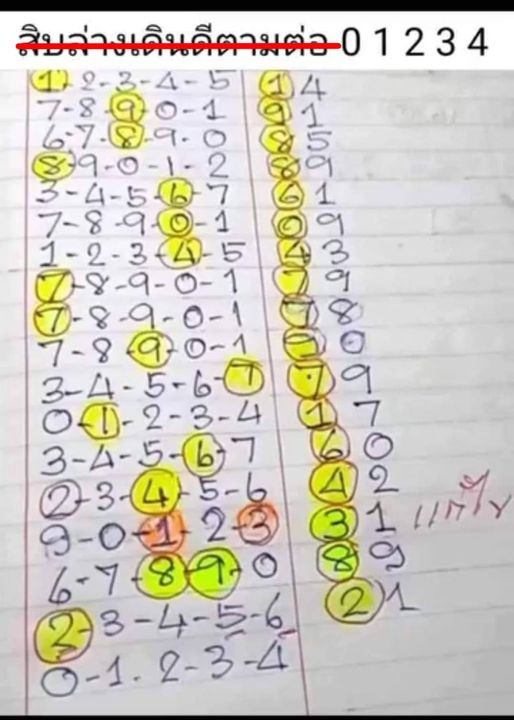 สิบล่างเดินดีตามต่อ 0 1 2 3 4
1-2-3-4-5 14
7-8-9-0-1 91
6-7-8-9-0 85
8-9-0-1-2 89
3-4-5-6-7 61
7-8-9-0-1 09
1-2-3-4-5 43
7-8-9-0-1 79
7-8-9-0-1 78
7-8-9-0-1 90
3-4-5-6-7 79
0-1-2-3-4 17
3-4-5-6-7 60
2-3-4-5-6 42
9-0-1-2-3 31
6-7-8-9-0 89
2-3-4-5-6 21
0-1-2-3-4